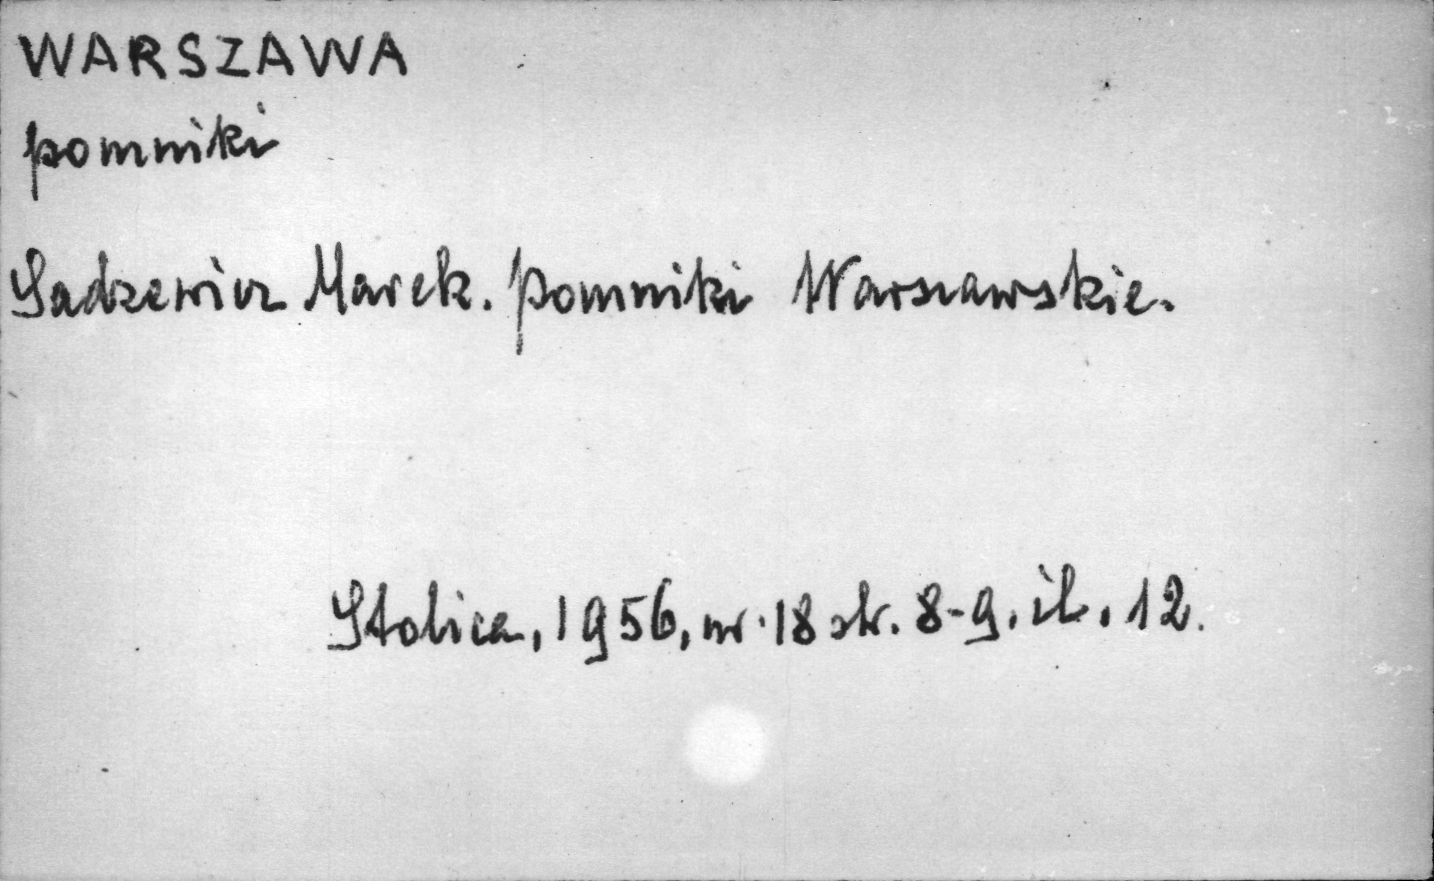 WARSZAWA
pomniki
Sadzewicz Marek. Pomniki Warszawskie.
Stolica, 1956, nr. 18 str. 8-9. il. 12.